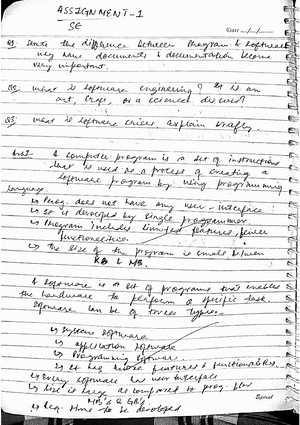 ASSIGNMENT-1
SE
Date
Q1 State the difference between Program & software
why have documents & documentation become
very important.
Q2 what is software engineering? It is an
art, craft or a science discuss?
Q3 what is software crises, explain briefly.
Ans1- A computer program is a set of instructions
that is used as a process of creating a
software program by using programming
language.
↳ Prog. does not have any user-interface
↳ It is developed by single programmer
↳ Program includes limited features, fewer
functionalities
↳ The size of the program is small between
KB & MB.
A software is a set of programs that enables
the hardware to perform a specific task.
Software can be of types.
↳ System software
↳ application software
↳ Programming software.
↳ It has more features & functionalities
↳ Every software has user interface
↳ Size is large as compared to prog. b/w
MB's & GB's
↳ Req. time to be developed